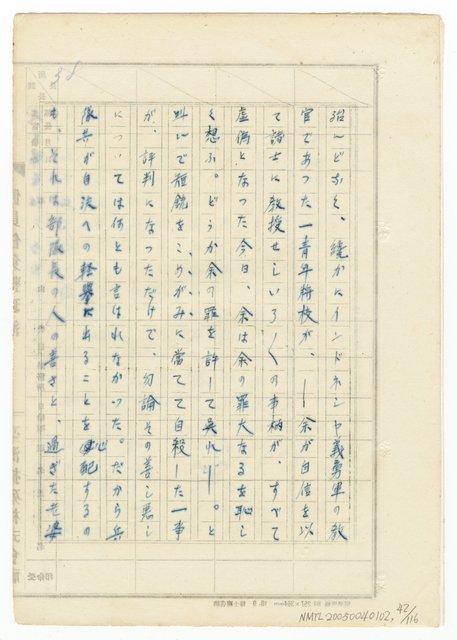 38
治んどなく、 繞かにインドネシヤ義勇軍の教
官であつた一青年将校が、 ―余が自信を以
て諸士に教授せしいろ〱の事柄が、すべて
虚偽となつた今日、余は余の罪大なるを恥し
く想ふ。どうか余の罪を許して呉れ！―。と
叫んで短銃をこめかみに當てて自殺した一事
が、評判になつただけで、勿論その善し悪し
については何とも言はれなかつた。だから兵
隊共が自決への軽擧に出ることを心配するの
も、それは部隊長の人の善さと、過ぎた老婆
NMTL20050040102, 42/116